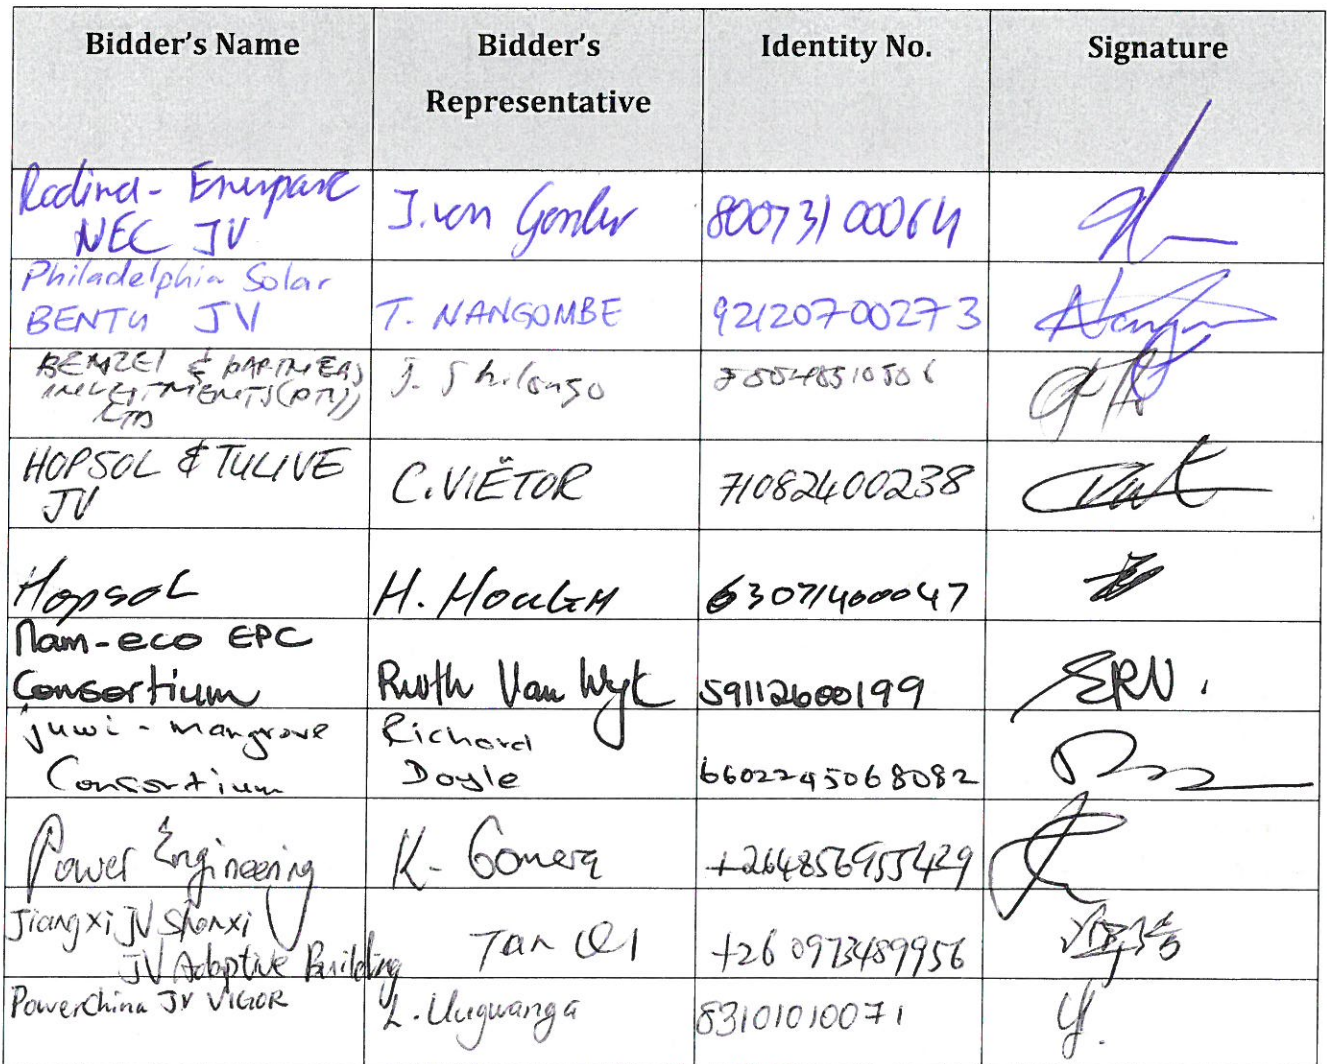 Bidder's Name Bidder's Representative Identity No. Signature
Radina- Enerparc
NEC JV
J. von Gossler
80073100064
Philadelphia Solar
BENTU JV
T. NANGOMBE
92120700273
& PARTNERS
INVESTMENTS (PTY)
LTD
J. Shilongo
HOPSOL & TULIVE
JV
C. VIËTOR
71082400238
HopsoL
H. HOUGH
63071400047
Nam-eco EPC
Consortium
Ruth Van Wyk
59112600199
juwi - mangrove
Consortium
Richard
Doyle
6602245068082
Power Engineering
K- Gomera
+264856955429
Jiangxi JV Shanxi
JV Adaptive Building
Tan QI
+260973489956
PowerChina JV VIGOR
L. Uugwanga
83101010071